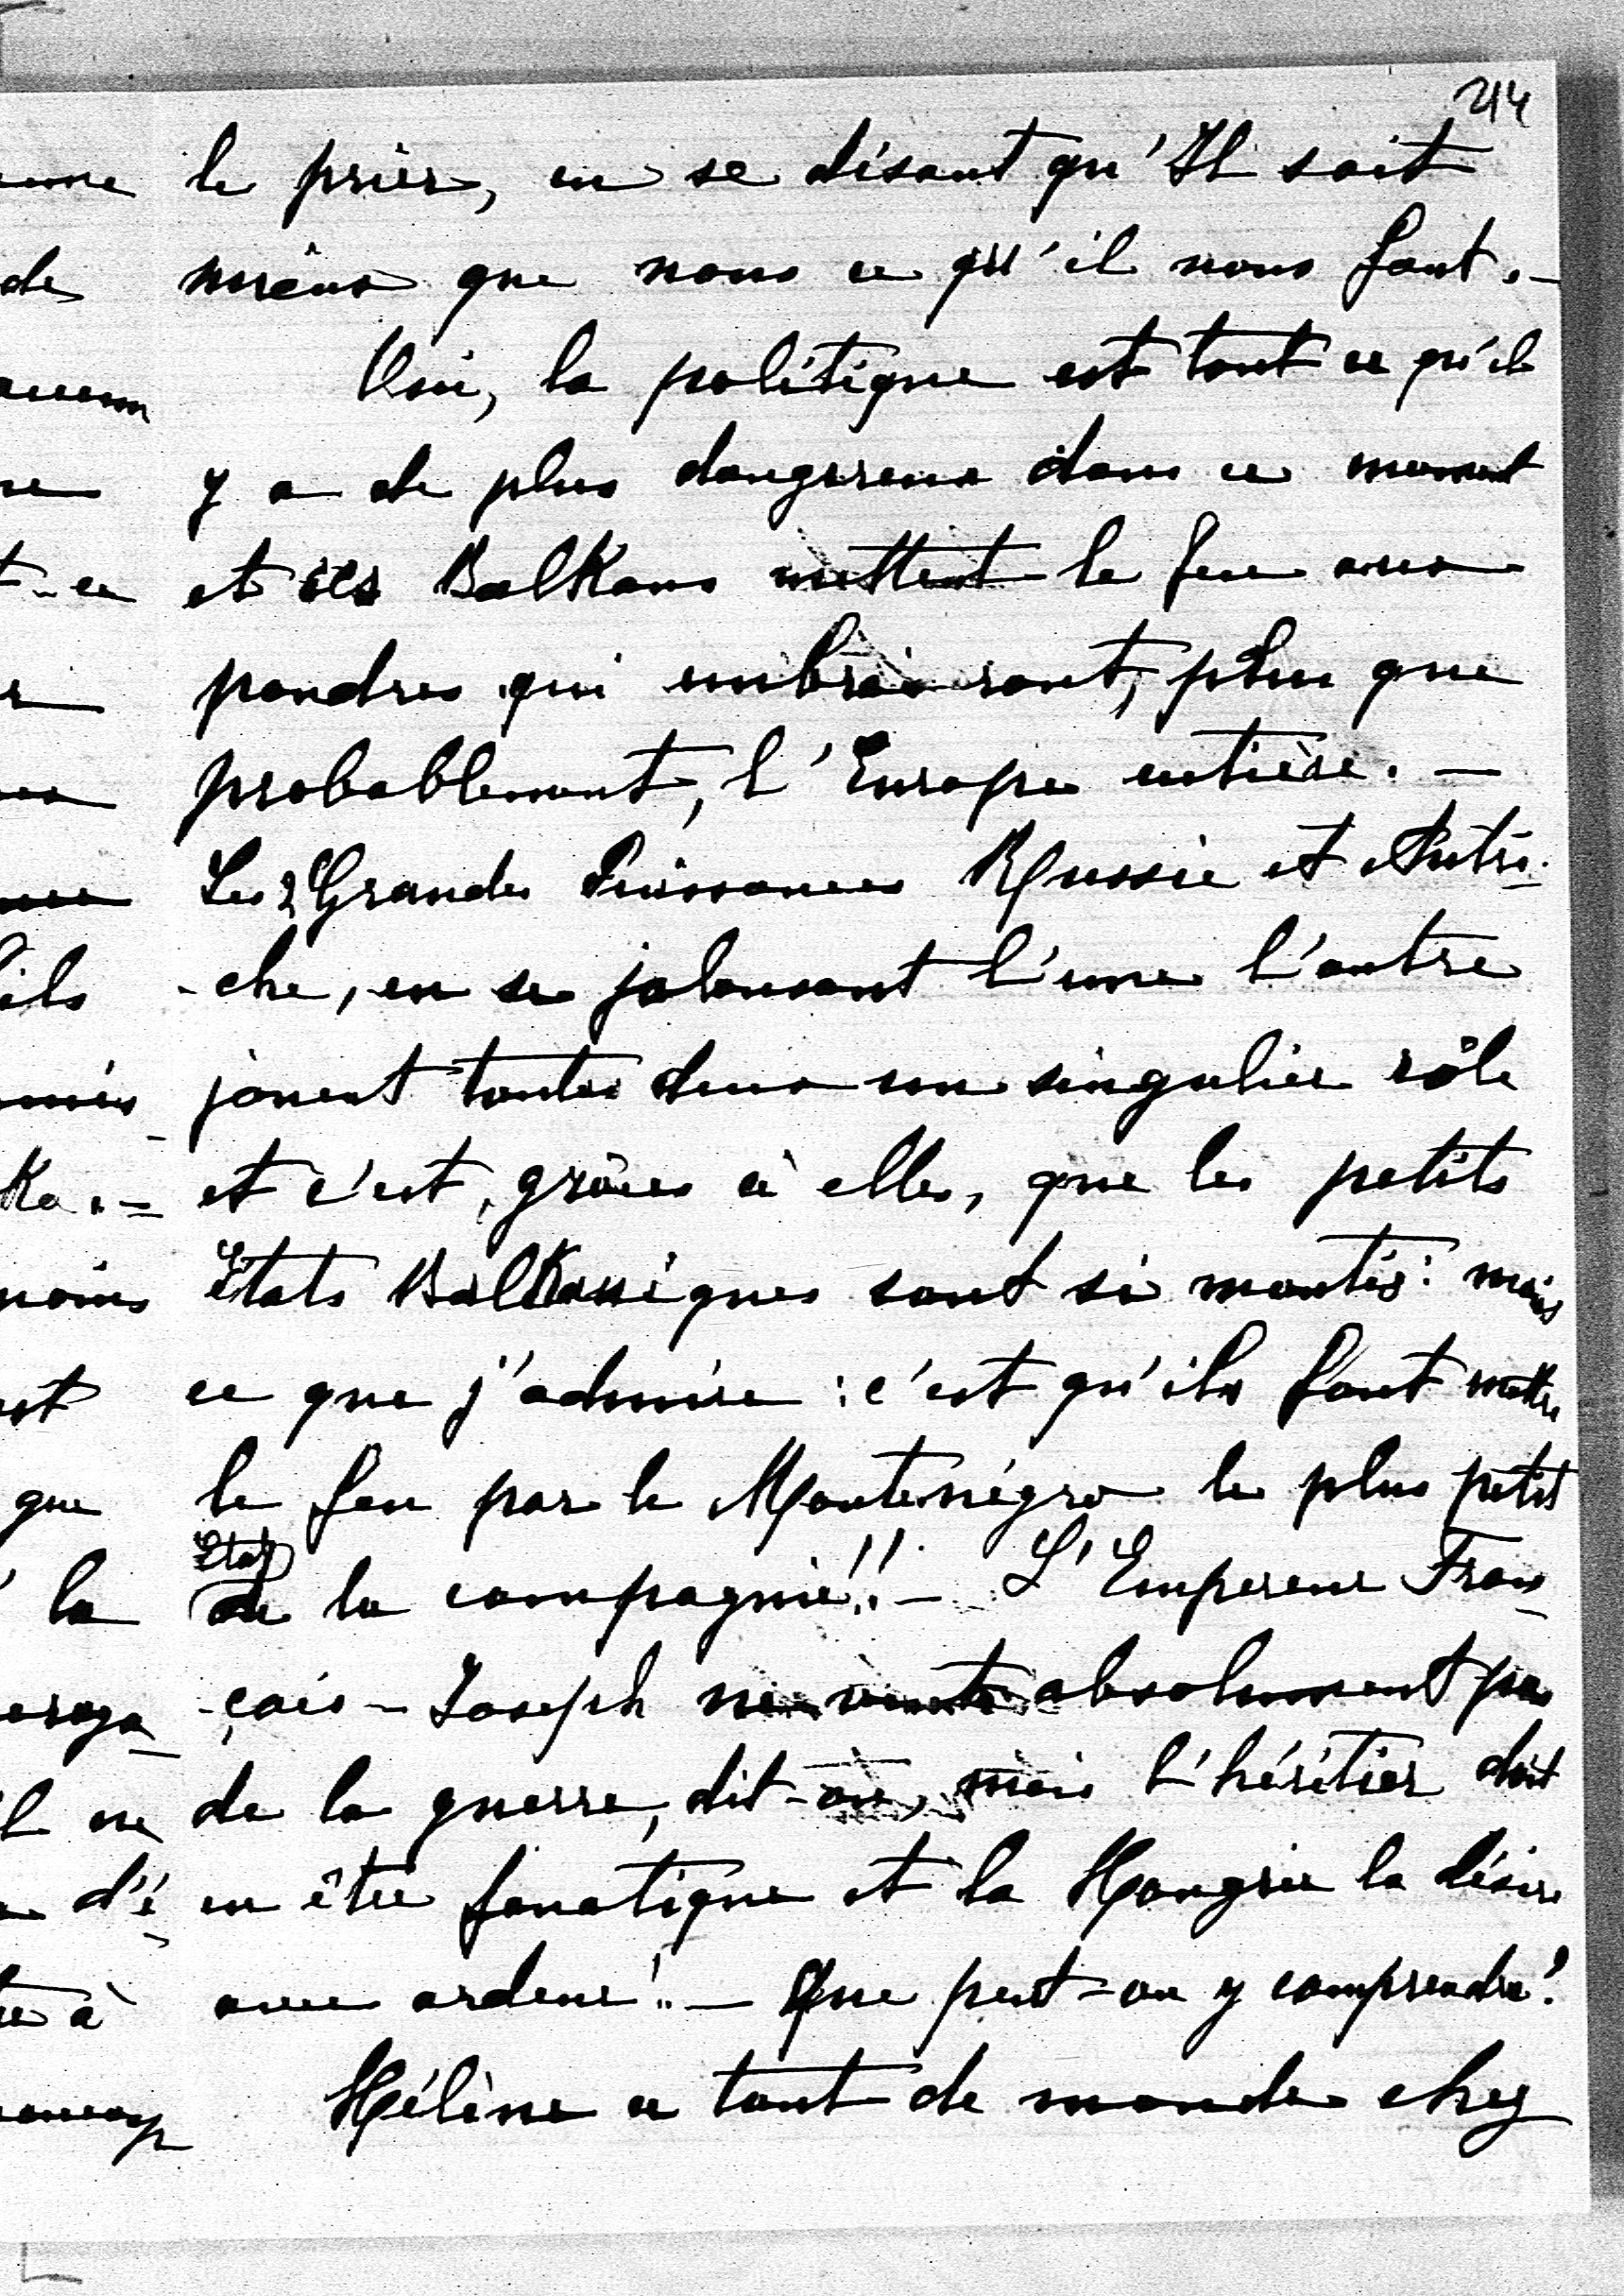 214
le prier, en se disant qu'Il sait
mieux que nous ce qu'il nous faut. –
Oui, la politique est tout ce qu'il
y a de plus dangereux dans ce moment
et les Balkans mettent le feu aux
poudres qui embraseront, plus que
probablement, l'Europe entière. –
Les 2 Grandes Puissances Russie et Autri-
-che, en se jalousant l'une l'autre
jouent toutes deux un singulier rôle
et c'est, grâce à elles, que les petits
Etats Balkaniques sont si montés: mais
ce que j'admire : c'est qu'ils font mettre
le feu par le Monténégro le plus petit
Etat
de la compagnie!! – L'Empereur Fran-
-çois-Joseph ne veut absolument pas
de la guerre, dit-on, mais l'héritier doit
en être fanatique et la Hongrie la désire
avec ardeur!! – Que peut-on y comprendre?
Hélène a tant de monde chez